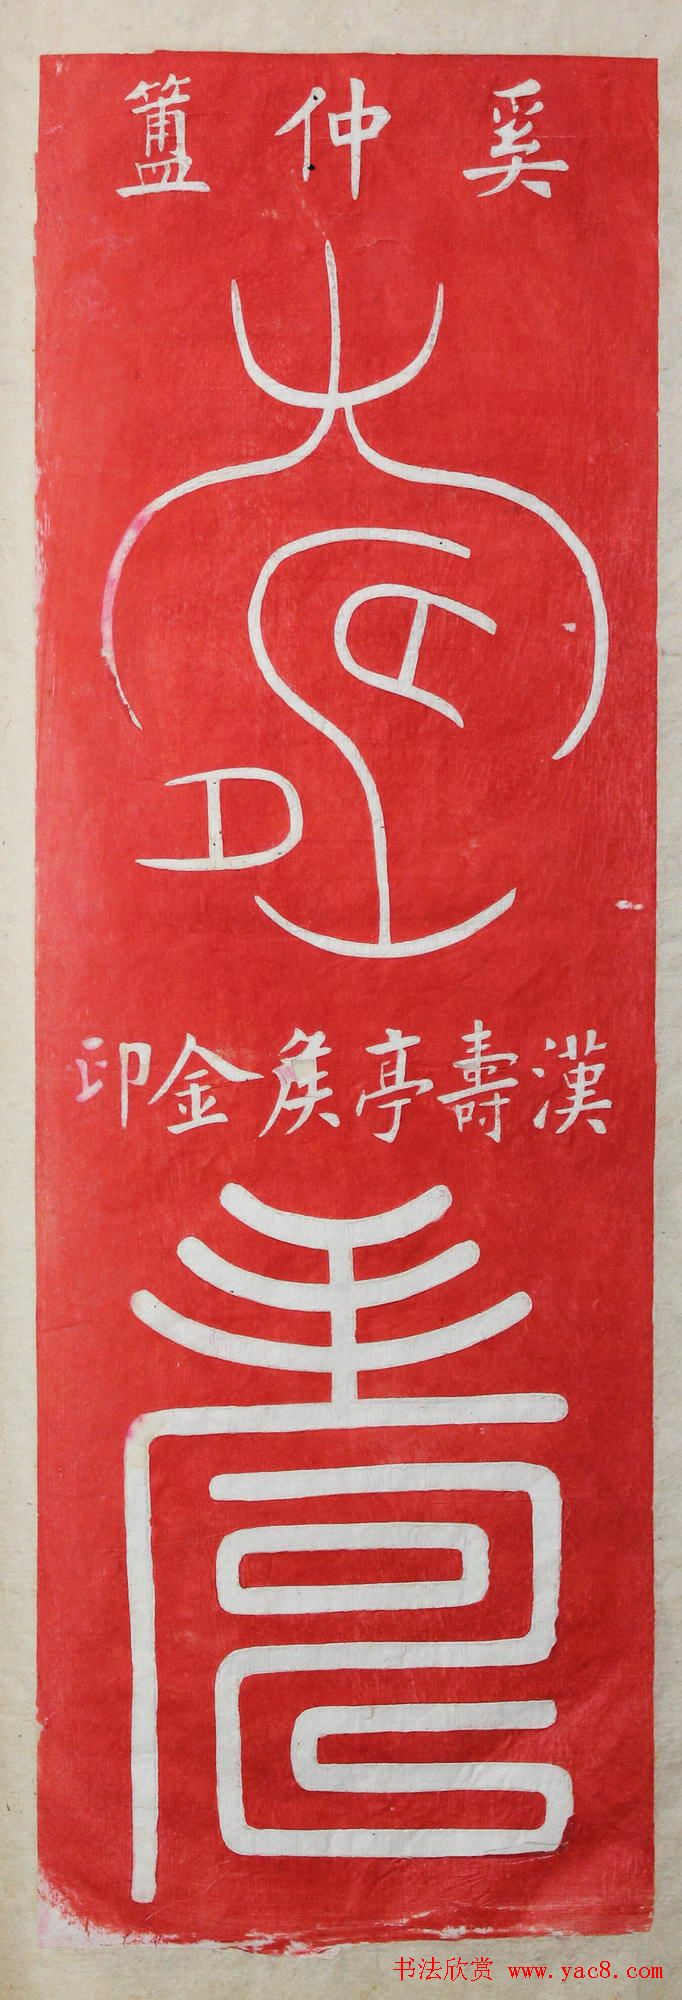 奚仲簠
壽
漢壽亭侯金印
壽
书法欣赏 www.yac8.com